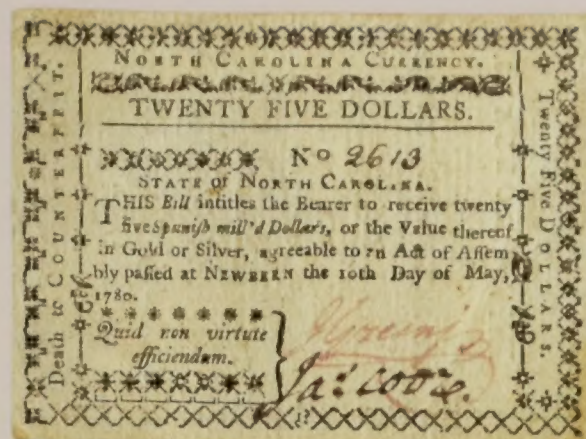 NORTH CAROLINA CURRENCY.
TWENTY FIVE DOLLARS.
No 2613
STATE of NORTH CAROLINA.
THIS Bill intitles the Bearer to receive twenty
five Spanish mill'd Dollars, or the Value thereof
in Gold or Silver, agreeable to an Act of Assem
bly passed at NEWBERN the 10th Day of May,
1780.
Quid non virtute
efficiendum.
Death to COUNTERFEIT.
Twenty Five DOLLARS.